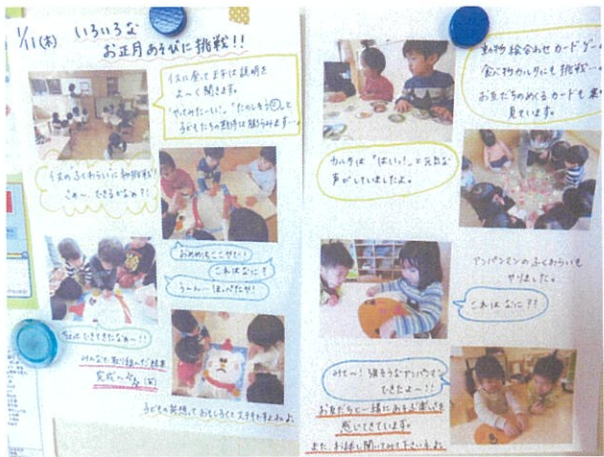 1/11(木) いろいろな
お正月あそびに挑戦!!
イスに座ってまずは説明を
よ〜く聞きます。
"やってみたーい!" "たのしそう"と
子どもたちの期待は膨らみます…。
犬のふくわらいに初挑戦!
さぁ〜、できるかなぁ?!
おめめはここかな!
これはなに?
う〜ん…ほっぺたか!
みんなで取り組んだ結果
完成〜
子どもの発想っておもしろくてステキですよねぇ
動物絵合わせカード
食べ物カルタにも挑戦…
お友だちのめくるカードも
見ています。
カルタは"はいっ!"と元気な
声がしていましたよ。
アンパンマンのふくわらいも
やりました。
これはなに??
みて〜!強そうなアンパンマン
できたよ〜!!
お友だちと一緒にあそぶ楽しさを
感じてきています。
また、お話し聞いてみて下さいネ